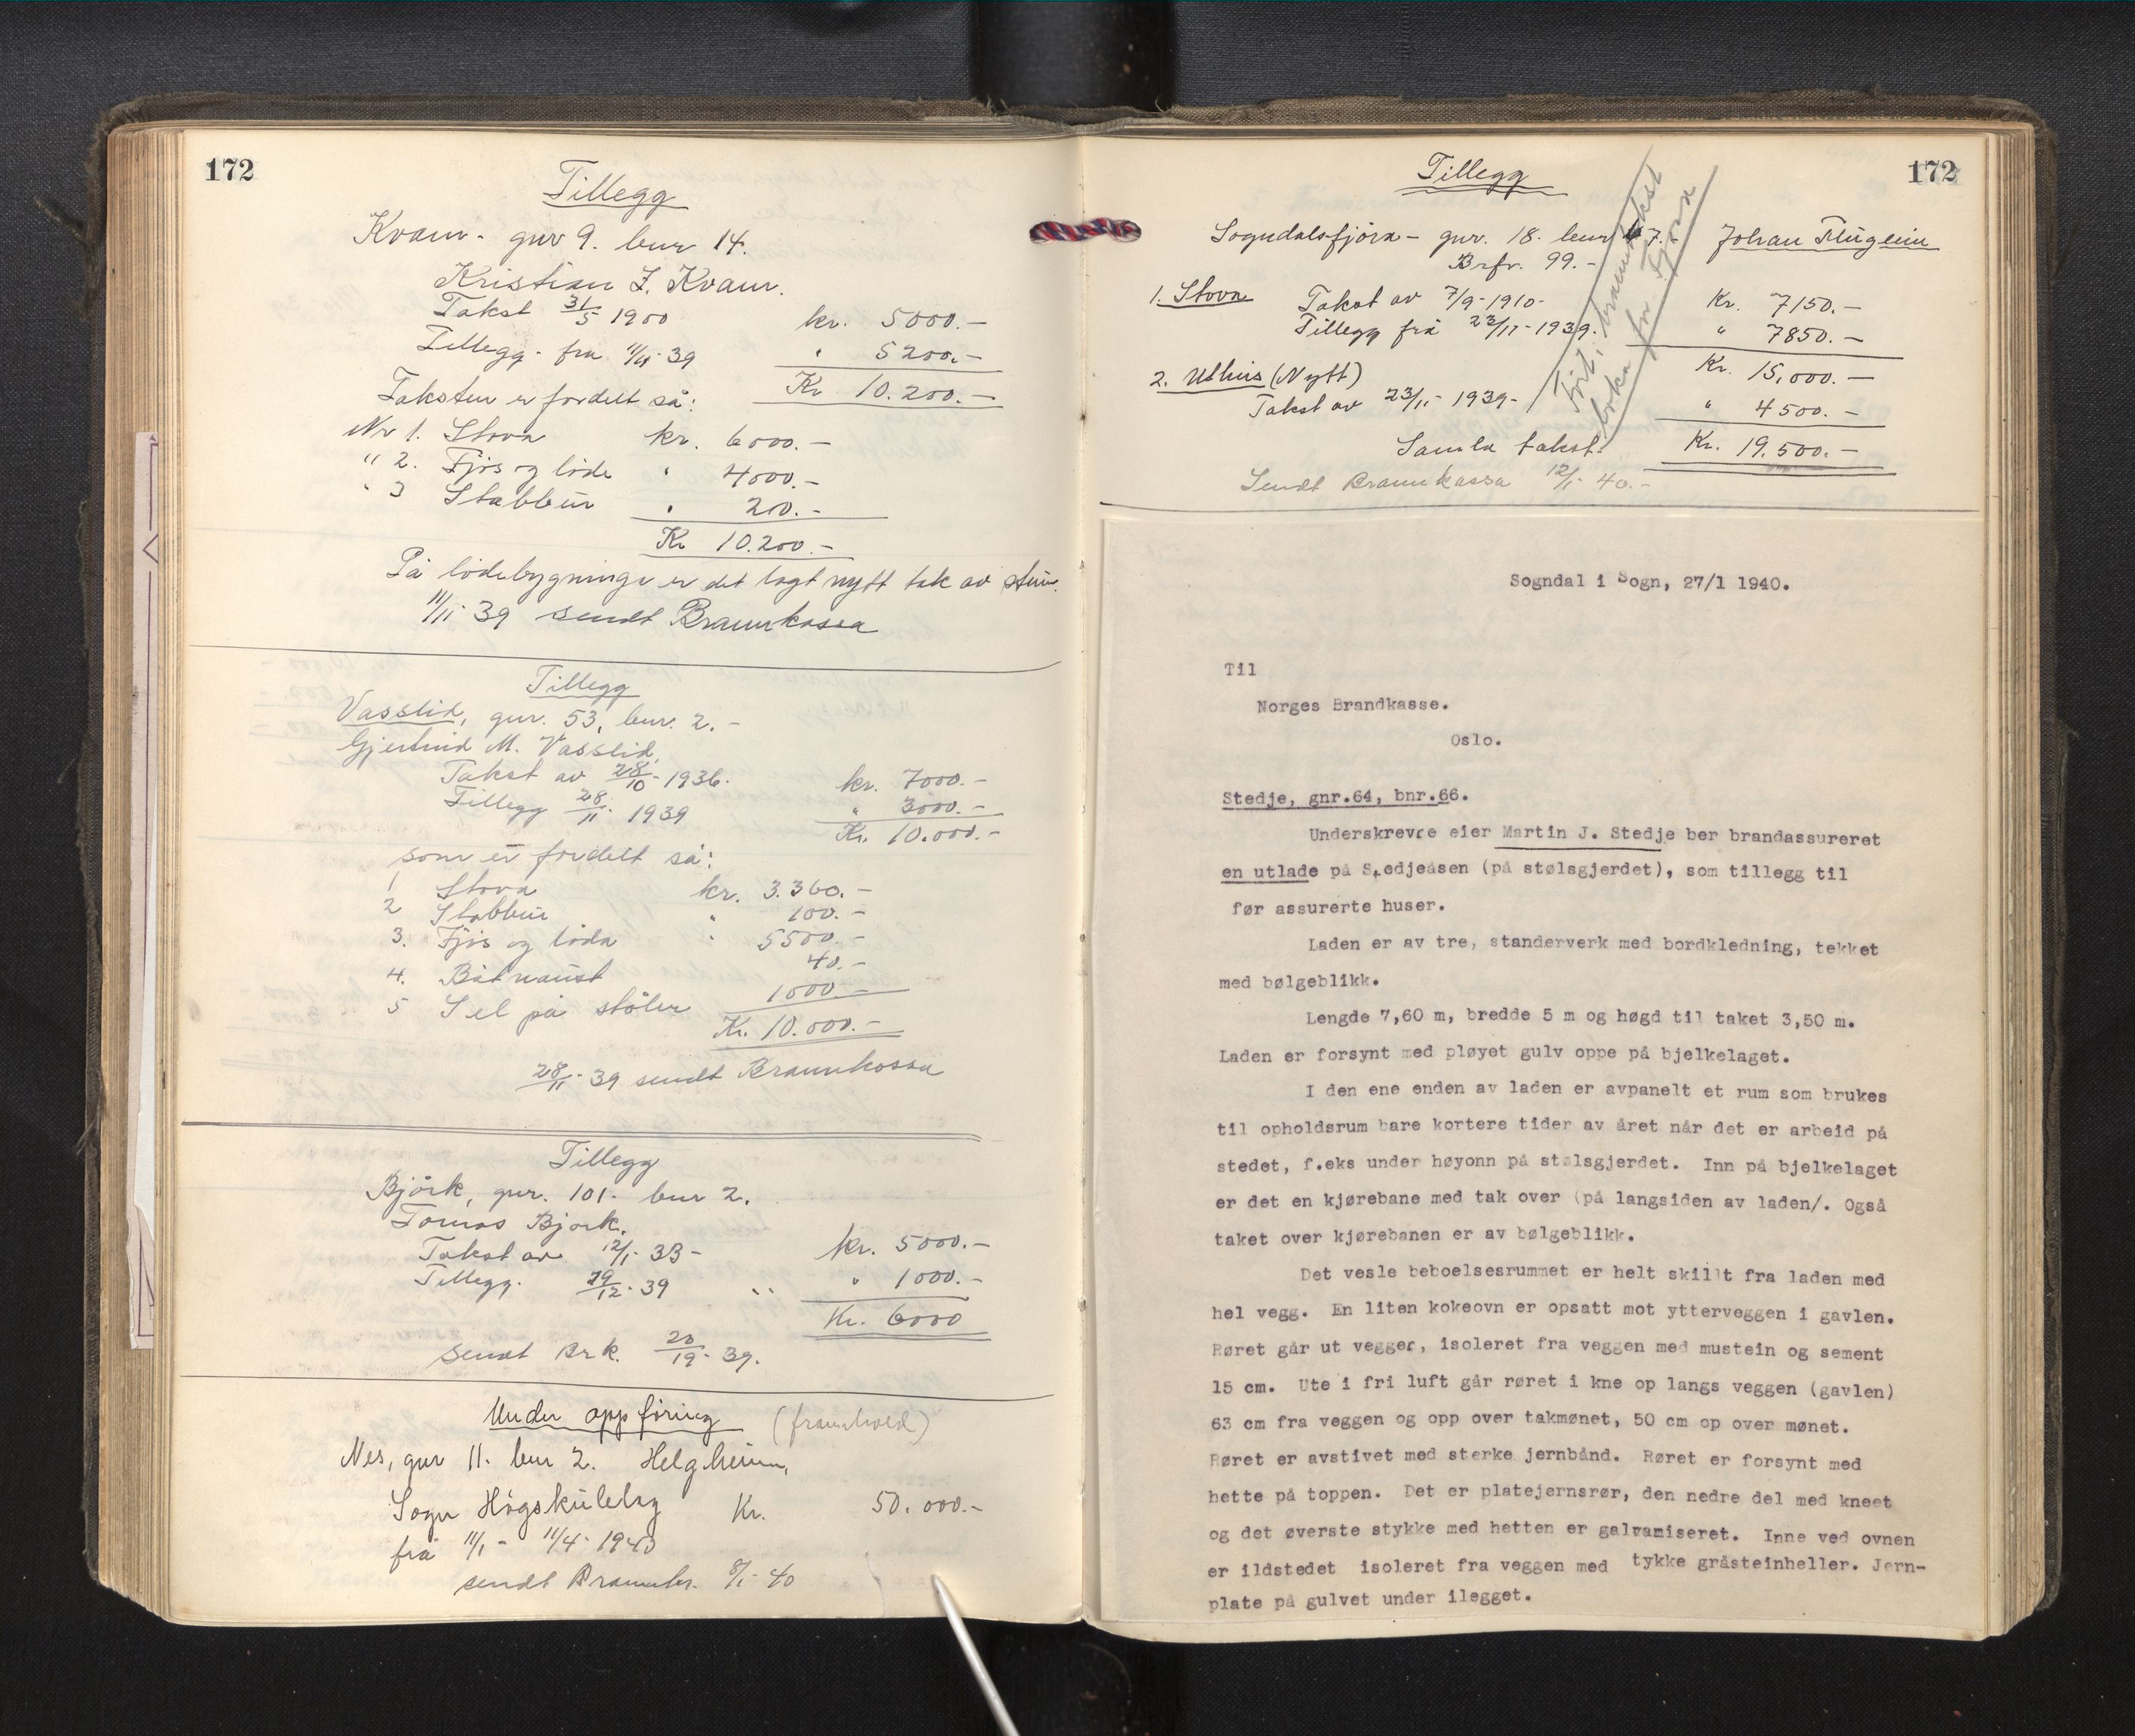 172
Tillegg
Kvam - gnr 9. bnr 14.
Kristian I. Kvam.
Takst 31/5 1900 kr. 5000.-
Tillegg - fra 11/11- 39 " 5200.-
Kr 10.200.-
Taksten er fordelt så:
Nr 1. Stova kr. 6000.-
" 2. Fjös og löde " 4000.-
" 3 Stabbur " 200.-
Kr 10.200.-
På lödebygningi er det lagt nytt tak av
11/11- 39 sendt Brannkassa
Tillegg
Vasslid, gnr. 53, bnr. 2. -
Gjertrud M. Vasslid.
Takst av 28/10- 1936. kr. 7000.-
Tillegg 28/11- 1939 " 3000.-
Kr. 10.000.-
som er fordelt så:
1 Stova kr. 3.360.-
2 Stabbur " 100.-
3. Fjös og löda " 5500.-
4. Båtnaust 40.-
5 Sel på stölen 1000.-
Kr. 10.000.-
28/11- 39 sendt Brannkassa
Tillegg
Björk, gnr. 101- bnr 2.
Tomas Björk.
Takst av 12/1- 33 - kr. 5000.-
Tillegg. 29/12- 39 " 1000.-
Kr. 6000
sendt Brk. 20/19- 39.
Under oppföring (framhald)
Nes, gnr 11. bnr 2. Helgheim,
Sogn Högskulelag Kr. 50.000.-
frå 11/1- 11/4- 1940
sendt Brannks. 8/1- 40
172
Tillegg
Sogndalsfjöra - gnr. 18. bnr 7. Johan Flugeim
Brfr. 99.-
1. Stova Takst av 7/9-1910- Kr. 7150.-
Tillegg frå 23/11-1939. " 7850.-
Kr. 15.000.-
2. Uthus (Nytt)
Takst av 23/11- 1939- " 4500.-
Samla takst: Kr. 19.500.-
Sendt Brannkassa 12/1- 40.-
Fört i branntakst
boka for Fjöra
Sogndal i Sogn, 27/1 1940.
Til
Norges Brandkasse.
Oslo.
Stedje, gnr.64, bnr.66.
Underskrevne eier Martin J. Stedje ber brandassureret
en utlade på Stedjeåsen (på stølsgjerdet), som tillegg til
før assurerte huser.
Laden er av tre, standerverk med bordkledning, tekket
med bølgeblikk.
Lengde 7,60 m, bredde 5 m og høgd til taket 3,50 m.
Laden er forsynt med pløyet gulv oppe på bjelkelaget.
I den ene enden av laden er avpanelt et rum som brukes
til opholdsrum bare kortere tider av året når det er arbeid på
stedet, f.eks under høyonn på stølsgjerdet. Inn på bjelkelaget
er det en kjørebane med tak over (på langsiden av laden/. Også
taket over kjørebanen er av bølgeblikk.
Det vesle beboelsesrummet er helt skillt fra laden med
hel vegg. En liten kokeovn er opsatt mot ytterveggen i gavlen.
Røret går ut veggen, isoleret fra veggen med mustein og sement
15 cm. Ute i fri luft går røret i kne op langs veggen (gavlen)
63 cm fra veggen og opp over takmønet, 50 cm op over mønet.
Røret er avstivet med sterke jernbånd. Røret er forsynt med
hette på toppen. Det er platejernsrør, den nedre del med kneet
og det øverste stykke med hetten er galvamiseret. Inne ved ovnen
er ildstedet isoleret fra veggen med tykke gråsteinheller. Jern-
plate på gulvet under ilegget.